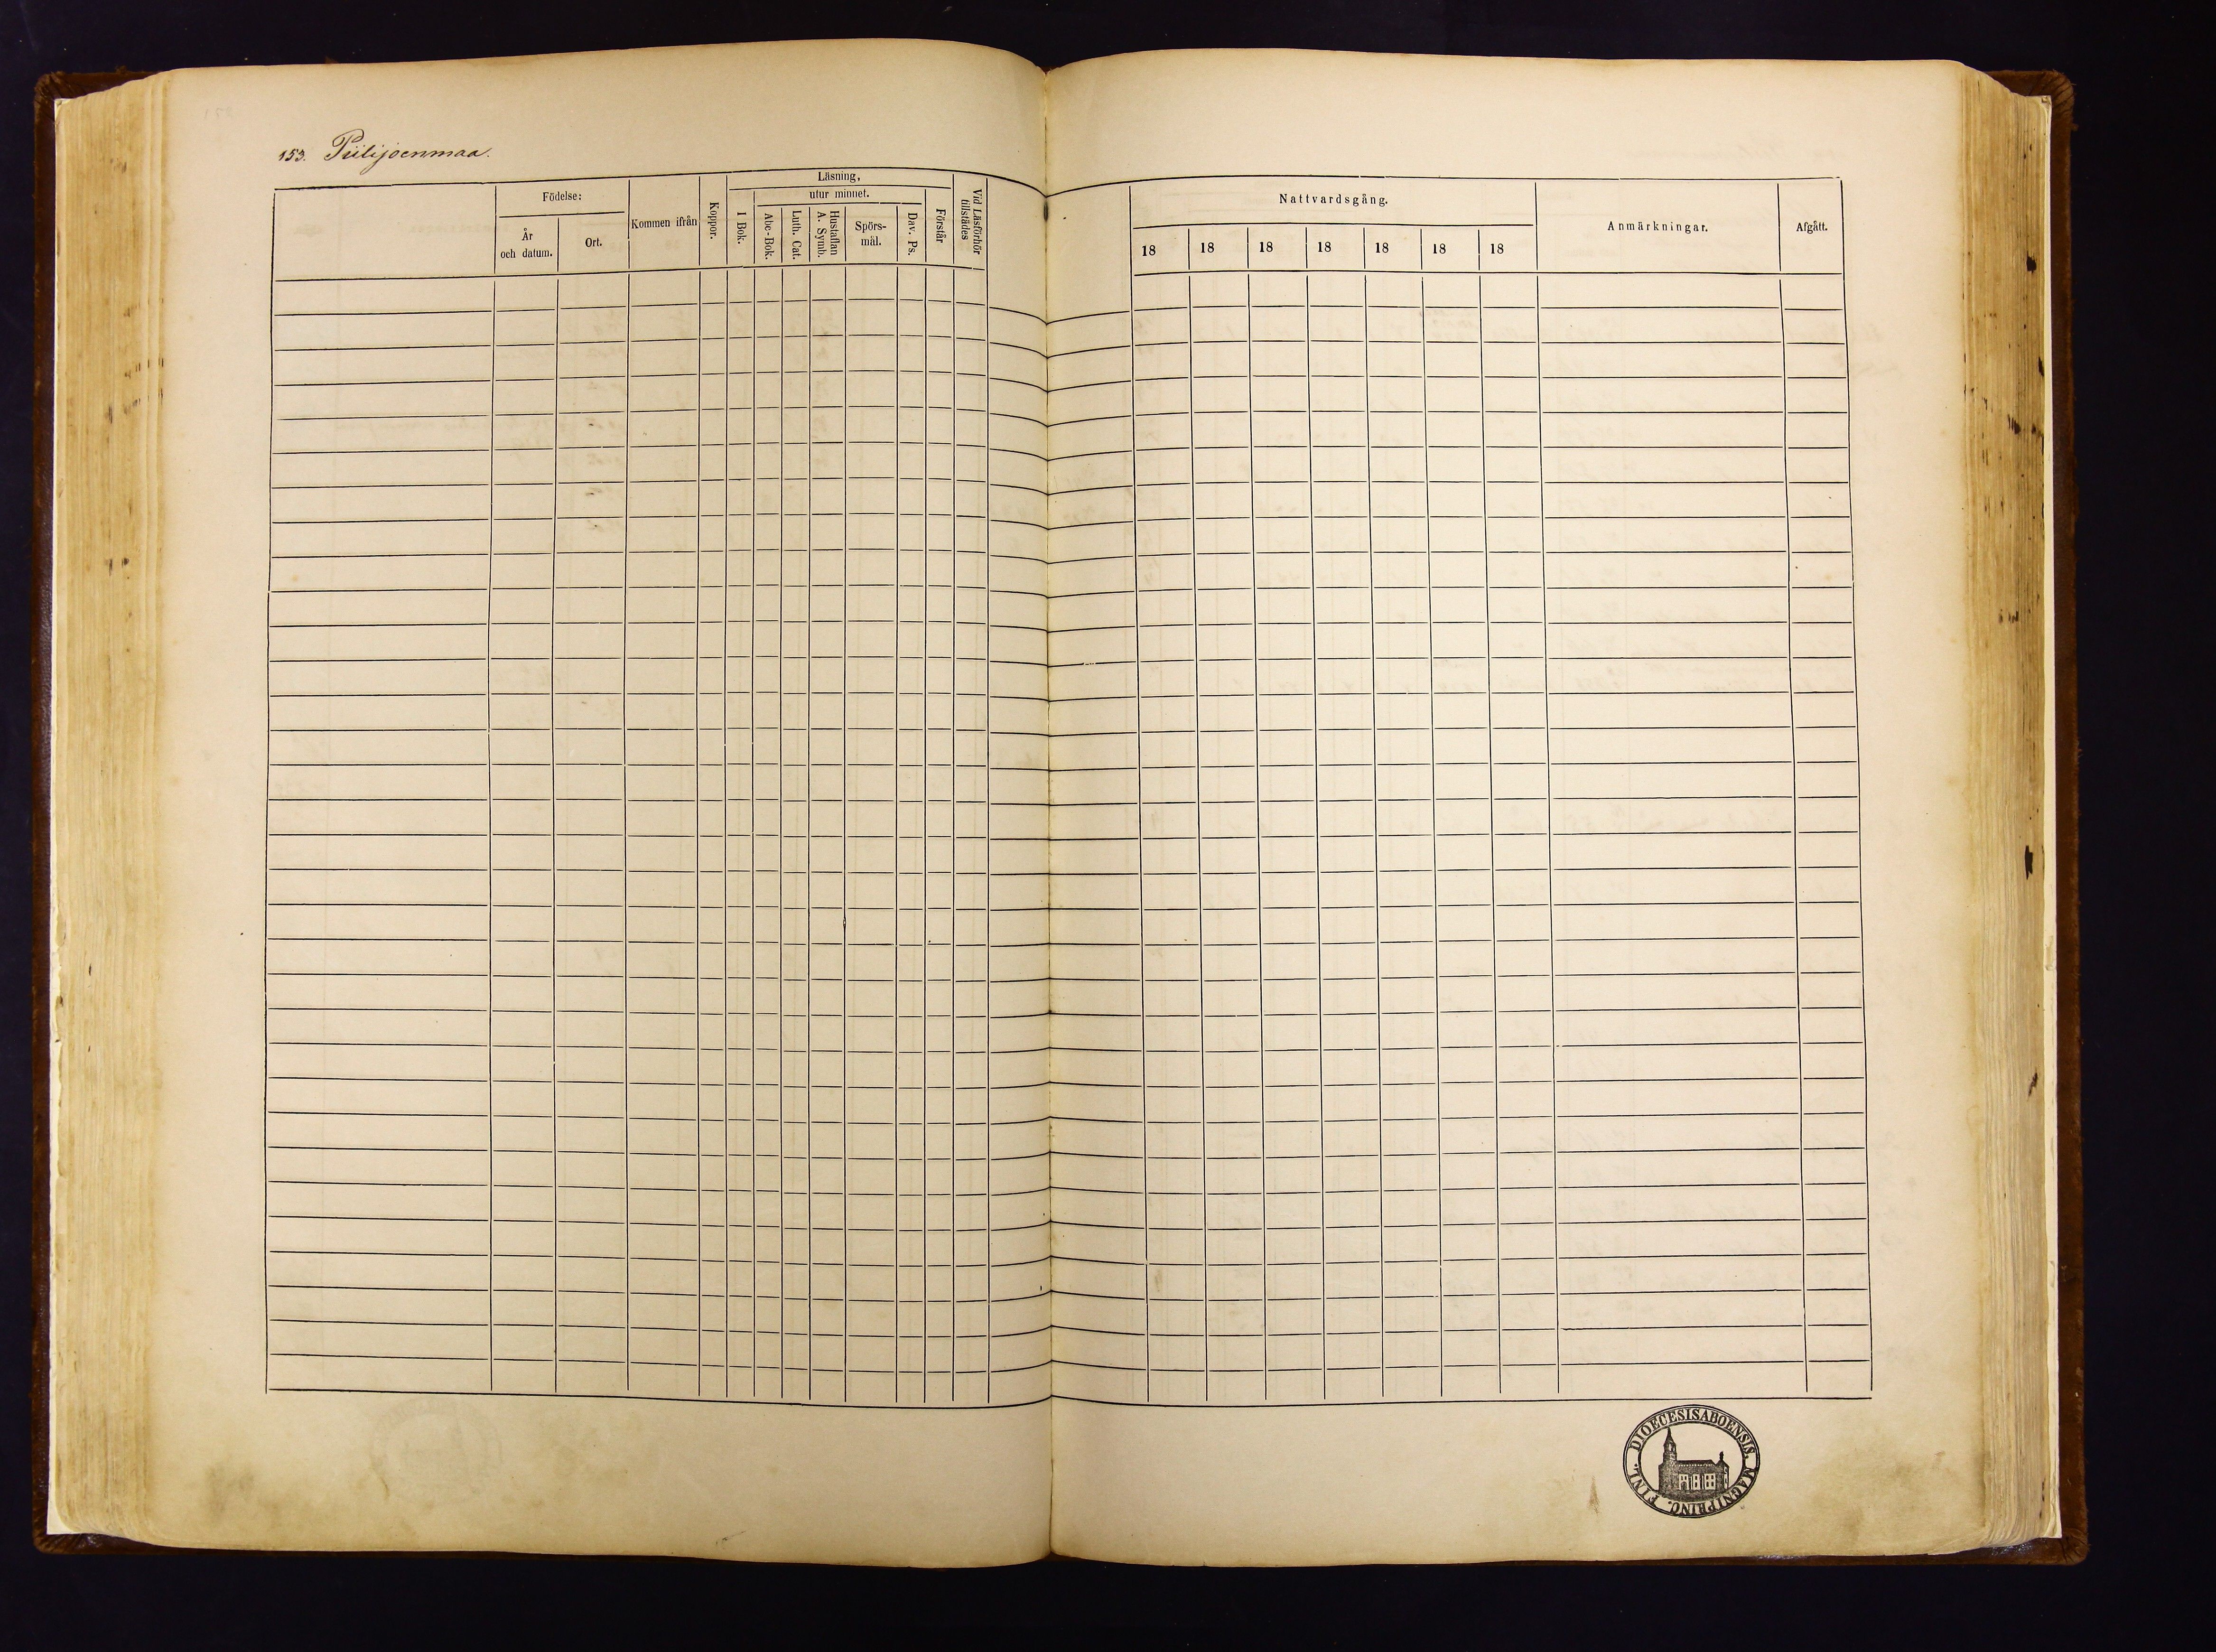 153. Piilijoenmaa.
Födelse:
År
och datum.
Ort.
Kommen ifrån
Koppor.
Läsning,
I Bok.
utur minnet.
Abc-Bok.
Luth. Cat.
Hustaflan
A. Symb.
Spörs-
mål.
Dav. Ps.
Förstår
Vid Läsförhör
tillstädes
Nattvardsgång.
18 18 18 18 18 18 18
Anmärkningar.
Afgått.
DIOECESIS ABOENSIS. MAGNI PRINC. FINL.